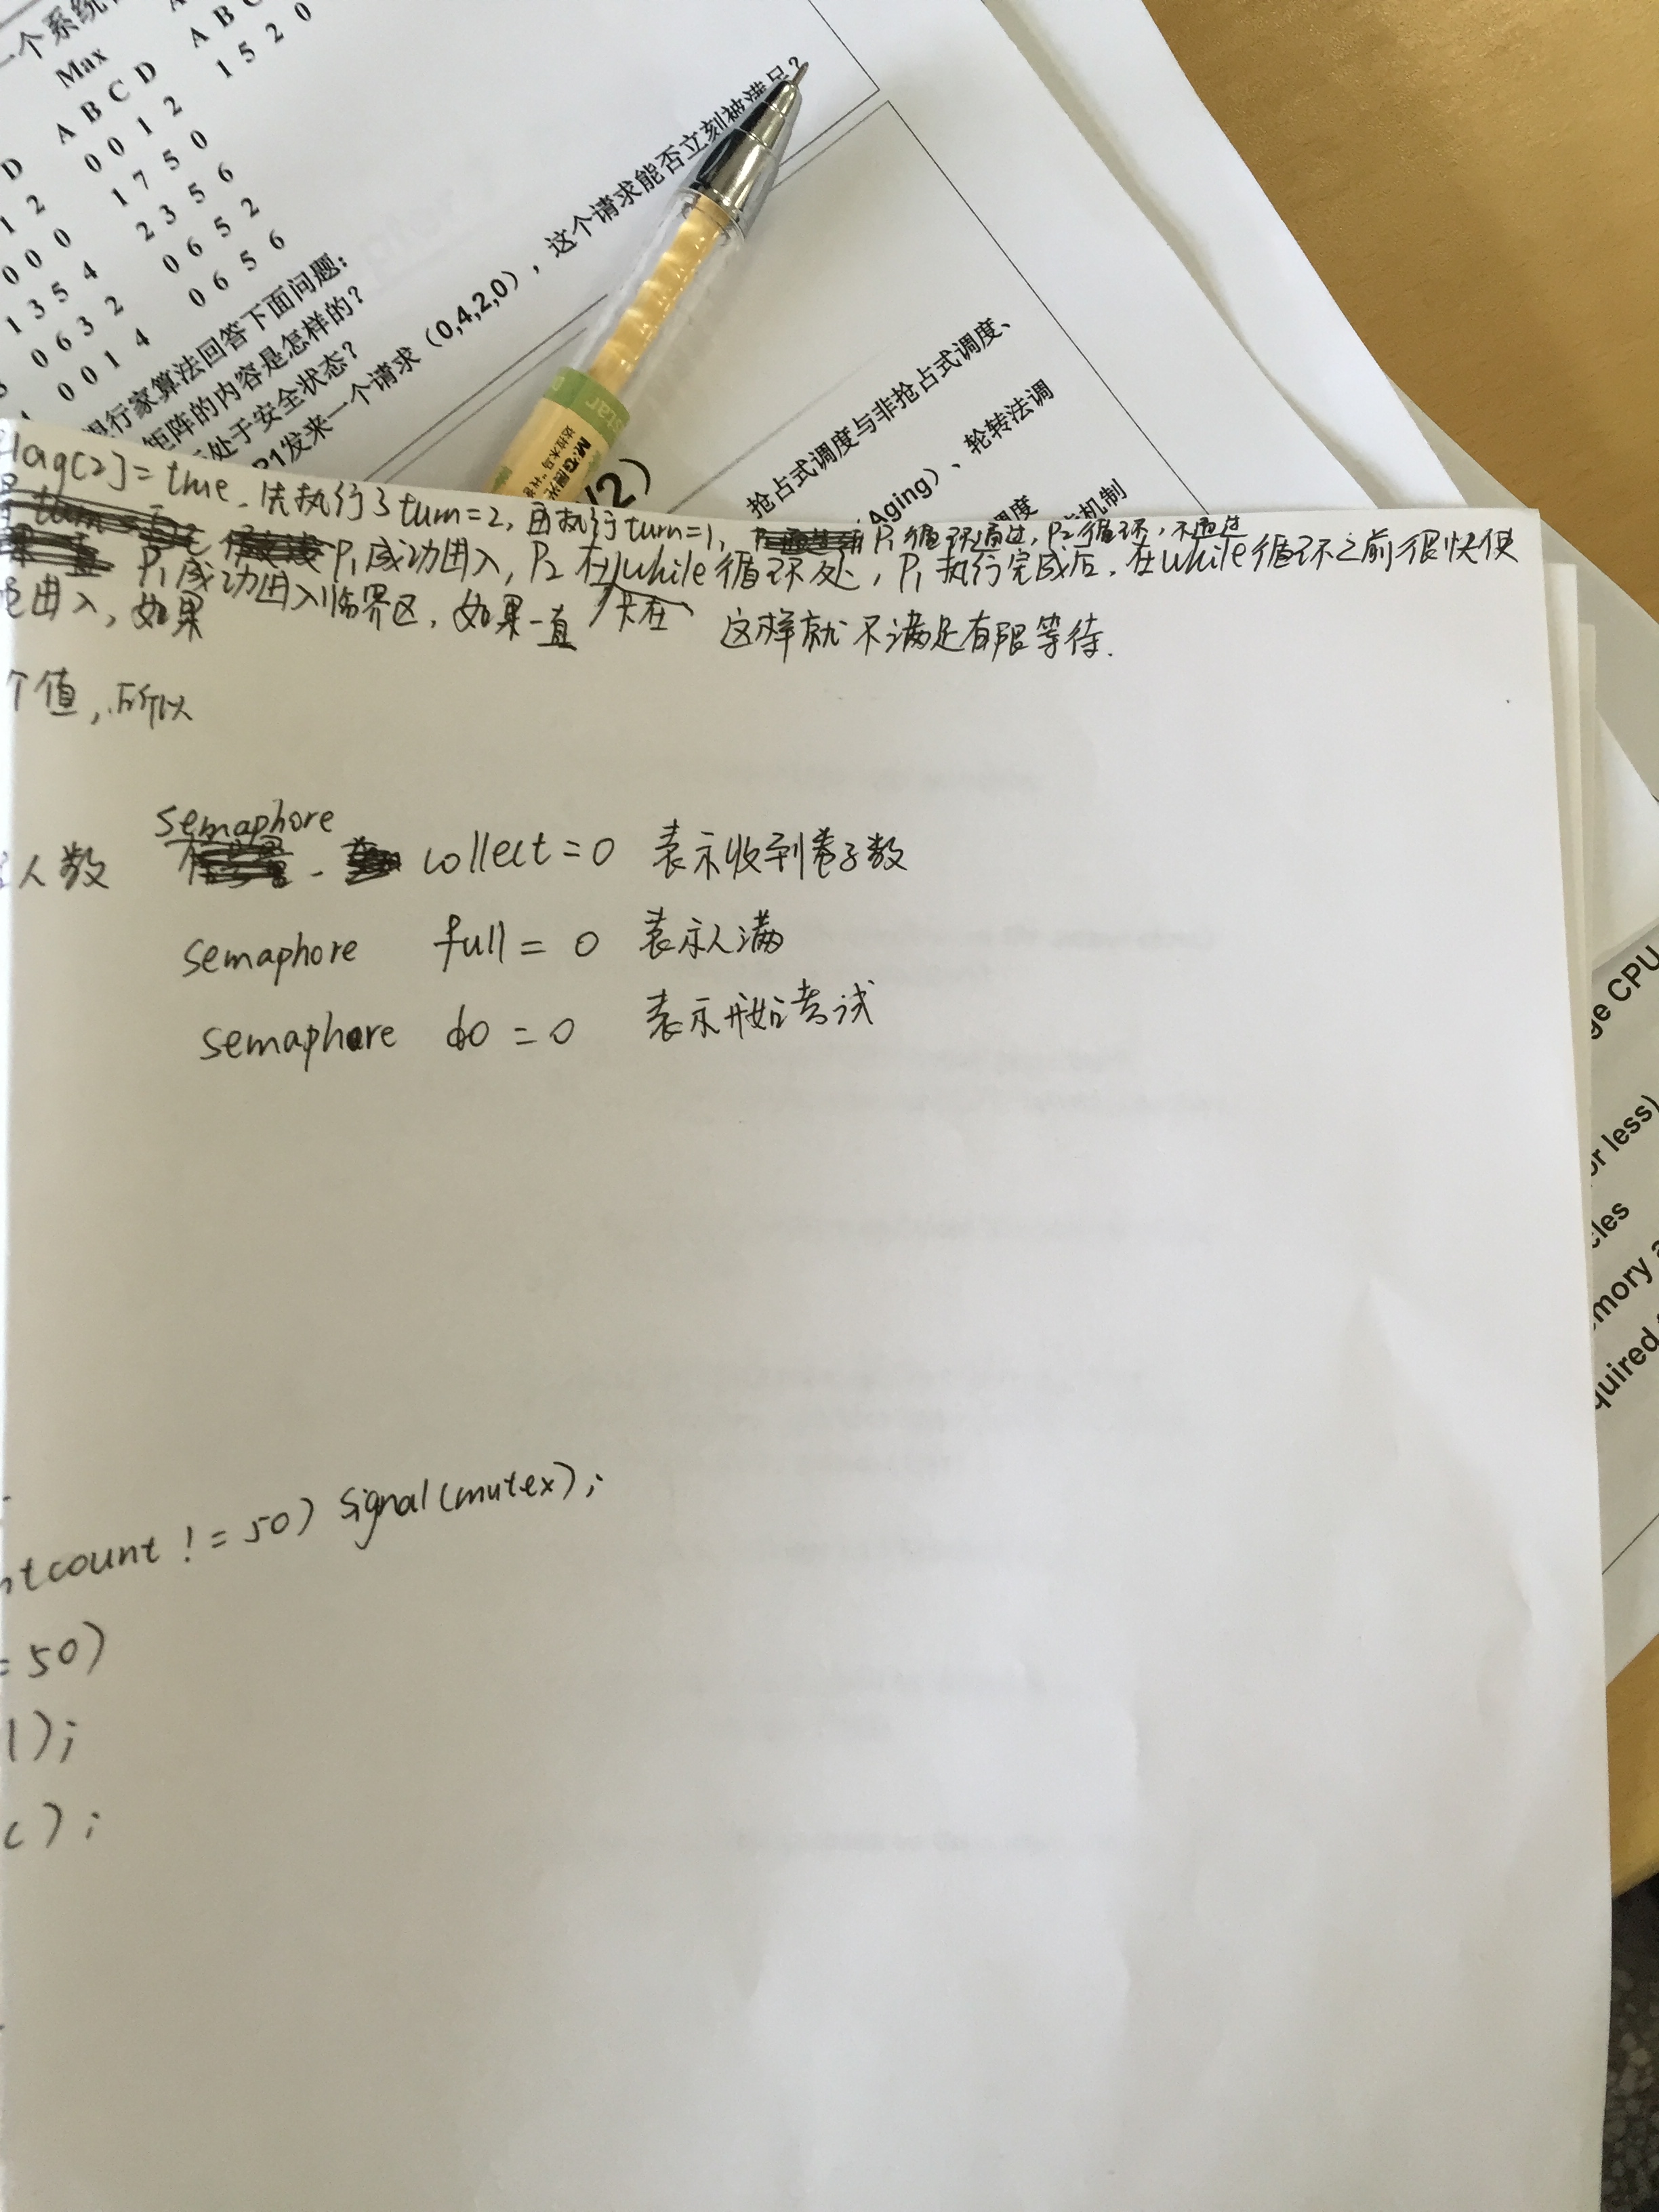 一个系统
Max
A B C D
A B C
1 5 2 0
D
0 0 1 2
1 2
1 7 5 0
0 0 0
2 3 5 6
1 3 5 4
0 6 5 2
0 6 3 2
0 6 5 6
0 0 1 4
银行家算法回答下面问题:
矩阵的内容是怎样的?
处于安全状态?
P1发来一个请求(0,4,2,0),这个请求能否立刻被满足?
/2)
抢占式调度与非抢占式调度、
Aging)、轮转法调
调度
机制
M&G晨光
flag[2]=true. 先执行了turn=2, 再执行turn=1, P1循环通过, P2循环, 不通过
P1成功进入, P2在while循环处, P1执行完成后, 在while循环之前很快使
P1成功进入临界区, 如果一直卡在
进入, 如果
这样就不满足有限等待.
个值, 所以
人数
semaphore collect=0 表示收到卷子数
semaphore full = 0 表示人满
semaphore do = 0 表示开始考试
ntcount != 50) signal(mutex);
= 50)
l);
c);
ge CPU
or less)
cles
mory a
quired